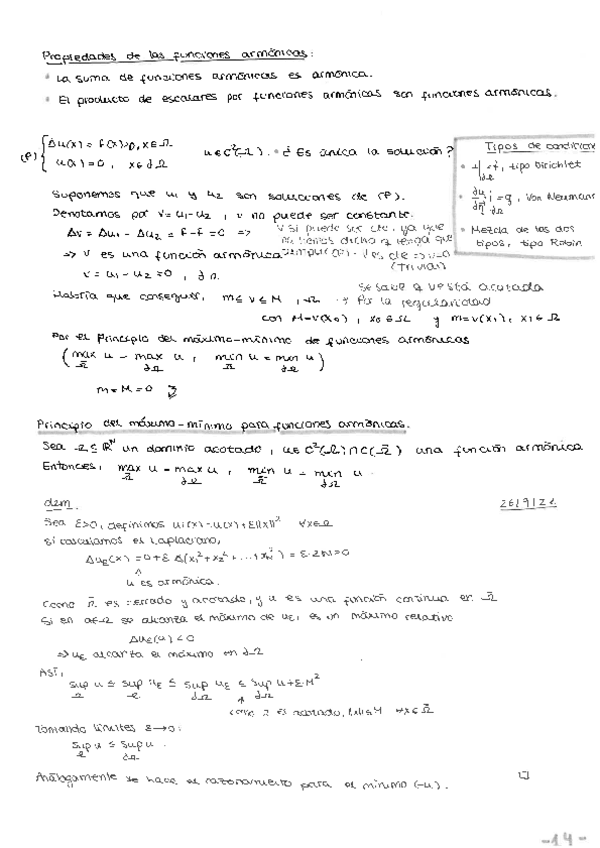 Propiedades de las funciones armónicas:
• La suma de funciones armónicas es armónica.
• El producto de escalares por funciones armónicas son funciones armónicas.
(P) { Δu(x) = f(x), x∈Ω
u(x) = 0, x∈∂Ω
u∈C²(Ω). • ¿Es única la solución?
Tipos de condiciones
• u|∂Ω = f, tipo Dirichlet
• ∂u/∂η|∂Ω = g, Von Neumann
• Mezcla de las dos
tipos, tipo Robin
Suponemos que u₁ y u₂ son soluciones de (P).
Denotamos por v = u₁ - u₂, v no puede ser constante.
Δv = Δu₁ - Δu₂ = f - f = 0 =>
v si puede ser cte, ya que
=> v es una función armónica
(trivial)
v = u₁ - u₂ = 0, ∂Ω
Se sabe q v está acotada
por la regularidad
Habría que conseguir, m ≤ v ≤ M, Ω
con M = v(x₀), x₀∈Ω y m = v(x₁), x₁∈Ω
Por el Principio del máximo-mínimo de funciones armónicas
(max Ω̄ u = max ∂Ω u, min Ω̄ u = min ∂Ω u)
m = M = 0
Principio del máximo-mínimo para funciones armónicas.
Sea Ω ⊆ ℝᴺ un dominio acotado, u∈C²(Ω)∩C(Ω̄) una función armónica
Entonces, max Ω̄ u = max ∂Ω u, min Ω̄ u = min ∂Ω u.
dem.
26/9/22
Sea ε>0, definimos uε(x) = u(x) + ε||x||² ∀x∈Ω
Si calculamos el Laplaciano,
Δuε(x) = 0 + ε Δ(x₁² + x₂² + ... + xN²) = ε·2N > 0
u es armónica.
Como Ω̄ es cerrado y acotado, y u es una función continua en Ω̄
Si en Ω se alcanza el máximo de uε, es un máximo relativo
Δuε(x) < 0
=> uε alcanza el máximo en ∂Ω
Así,
sup Ω u ≤ sup Ω uε ≤ sup ∂Ω uε ≤ sup ∂Ω u + ε·M²
como Ω es acotado, |x| ≤ M ∀x∈Ω̄
Tomando límites ε→0:
sup Ω u ≤ sup ∂Ω u.
Análogamente se hace el razonamiento para el mínimo (-u). □
-14-